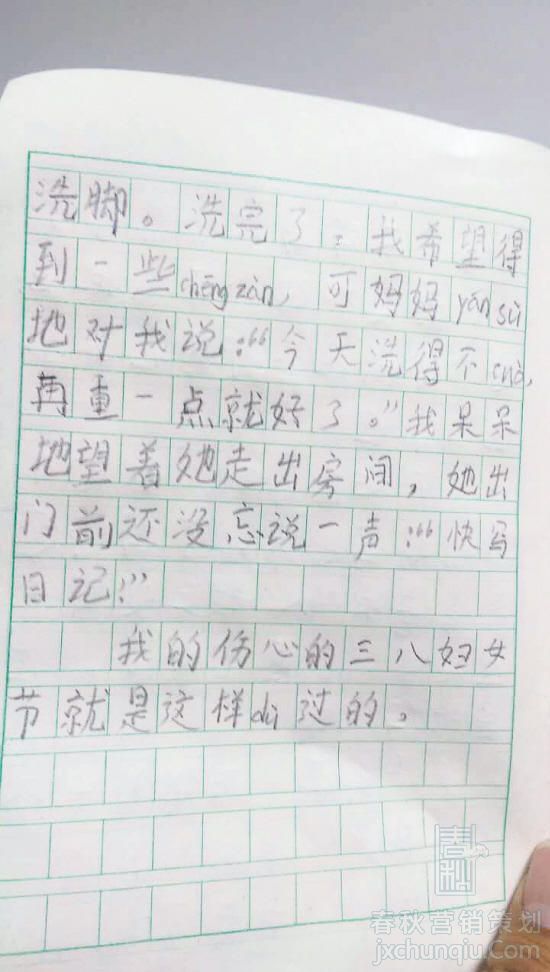 洗脚。洗完了，我希望得
到一些chēng zàn，可妈妈yán sù
地对我说：“今天洗得不cuò，
再重一点就好了。”我呆呆
地望着她走出房间，她出
门前还没忘说一声：“快写
日记！”
我的伤心的三八妇女
节就是这样dù过的。
春秋营销策划
jxchunqiu.Com